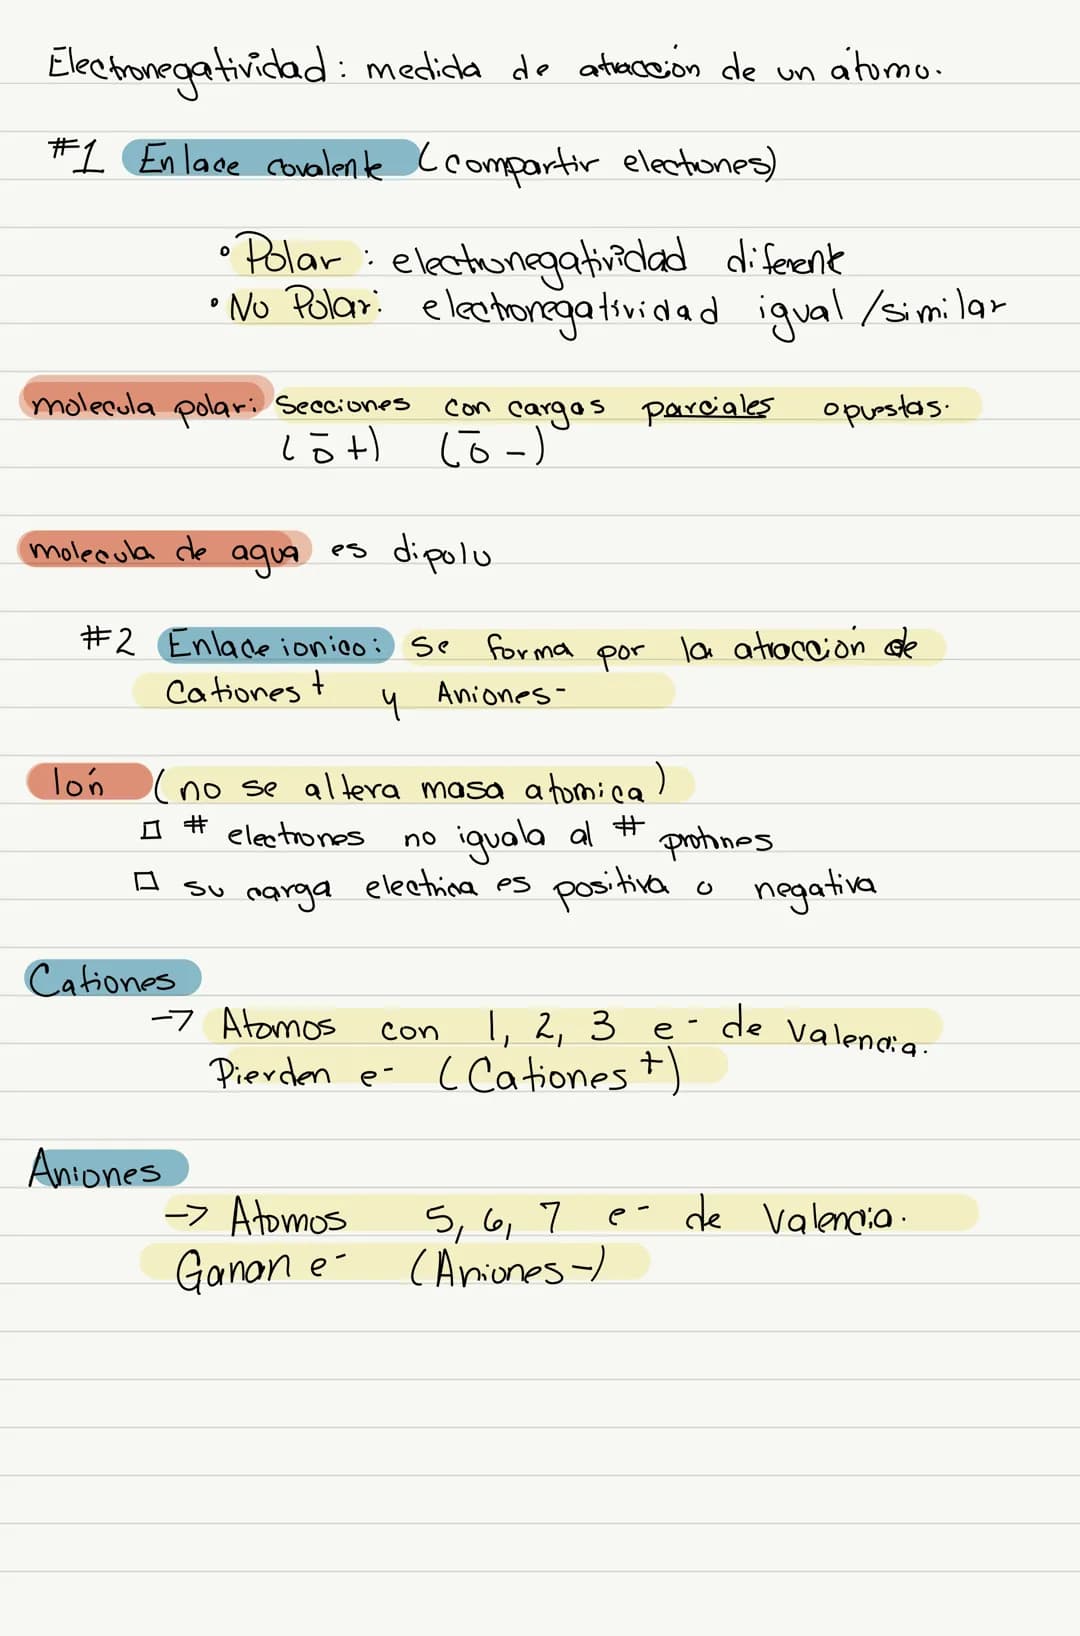 Electronegatividad: medida de atracción de un átomo.
#1 Enlace covalente (compartir electrones)
• Polar: electronegatividad diferente
• No Polar: electronegatividad igual/similar
molecula polar: Secciones con cargas parciales opuestas.
(δ+) (δ-)
molecula de agua es dipolo
#2 Enlace ionico: se forma por la atracción de
Cationes+ y Aniones-
Ión (no se altera masa atomica)
□ # electrones no iguala al # protones
□ su carga electrica es positiva o negativa
Cationes
→ Atomos con 1, 2, 3 e- de Valencia.
Pierden e- (Cationes+)
Aniones
→ Atomos 5, 6, 7 e- de Valencia.
Ganan e- (Aniones-)